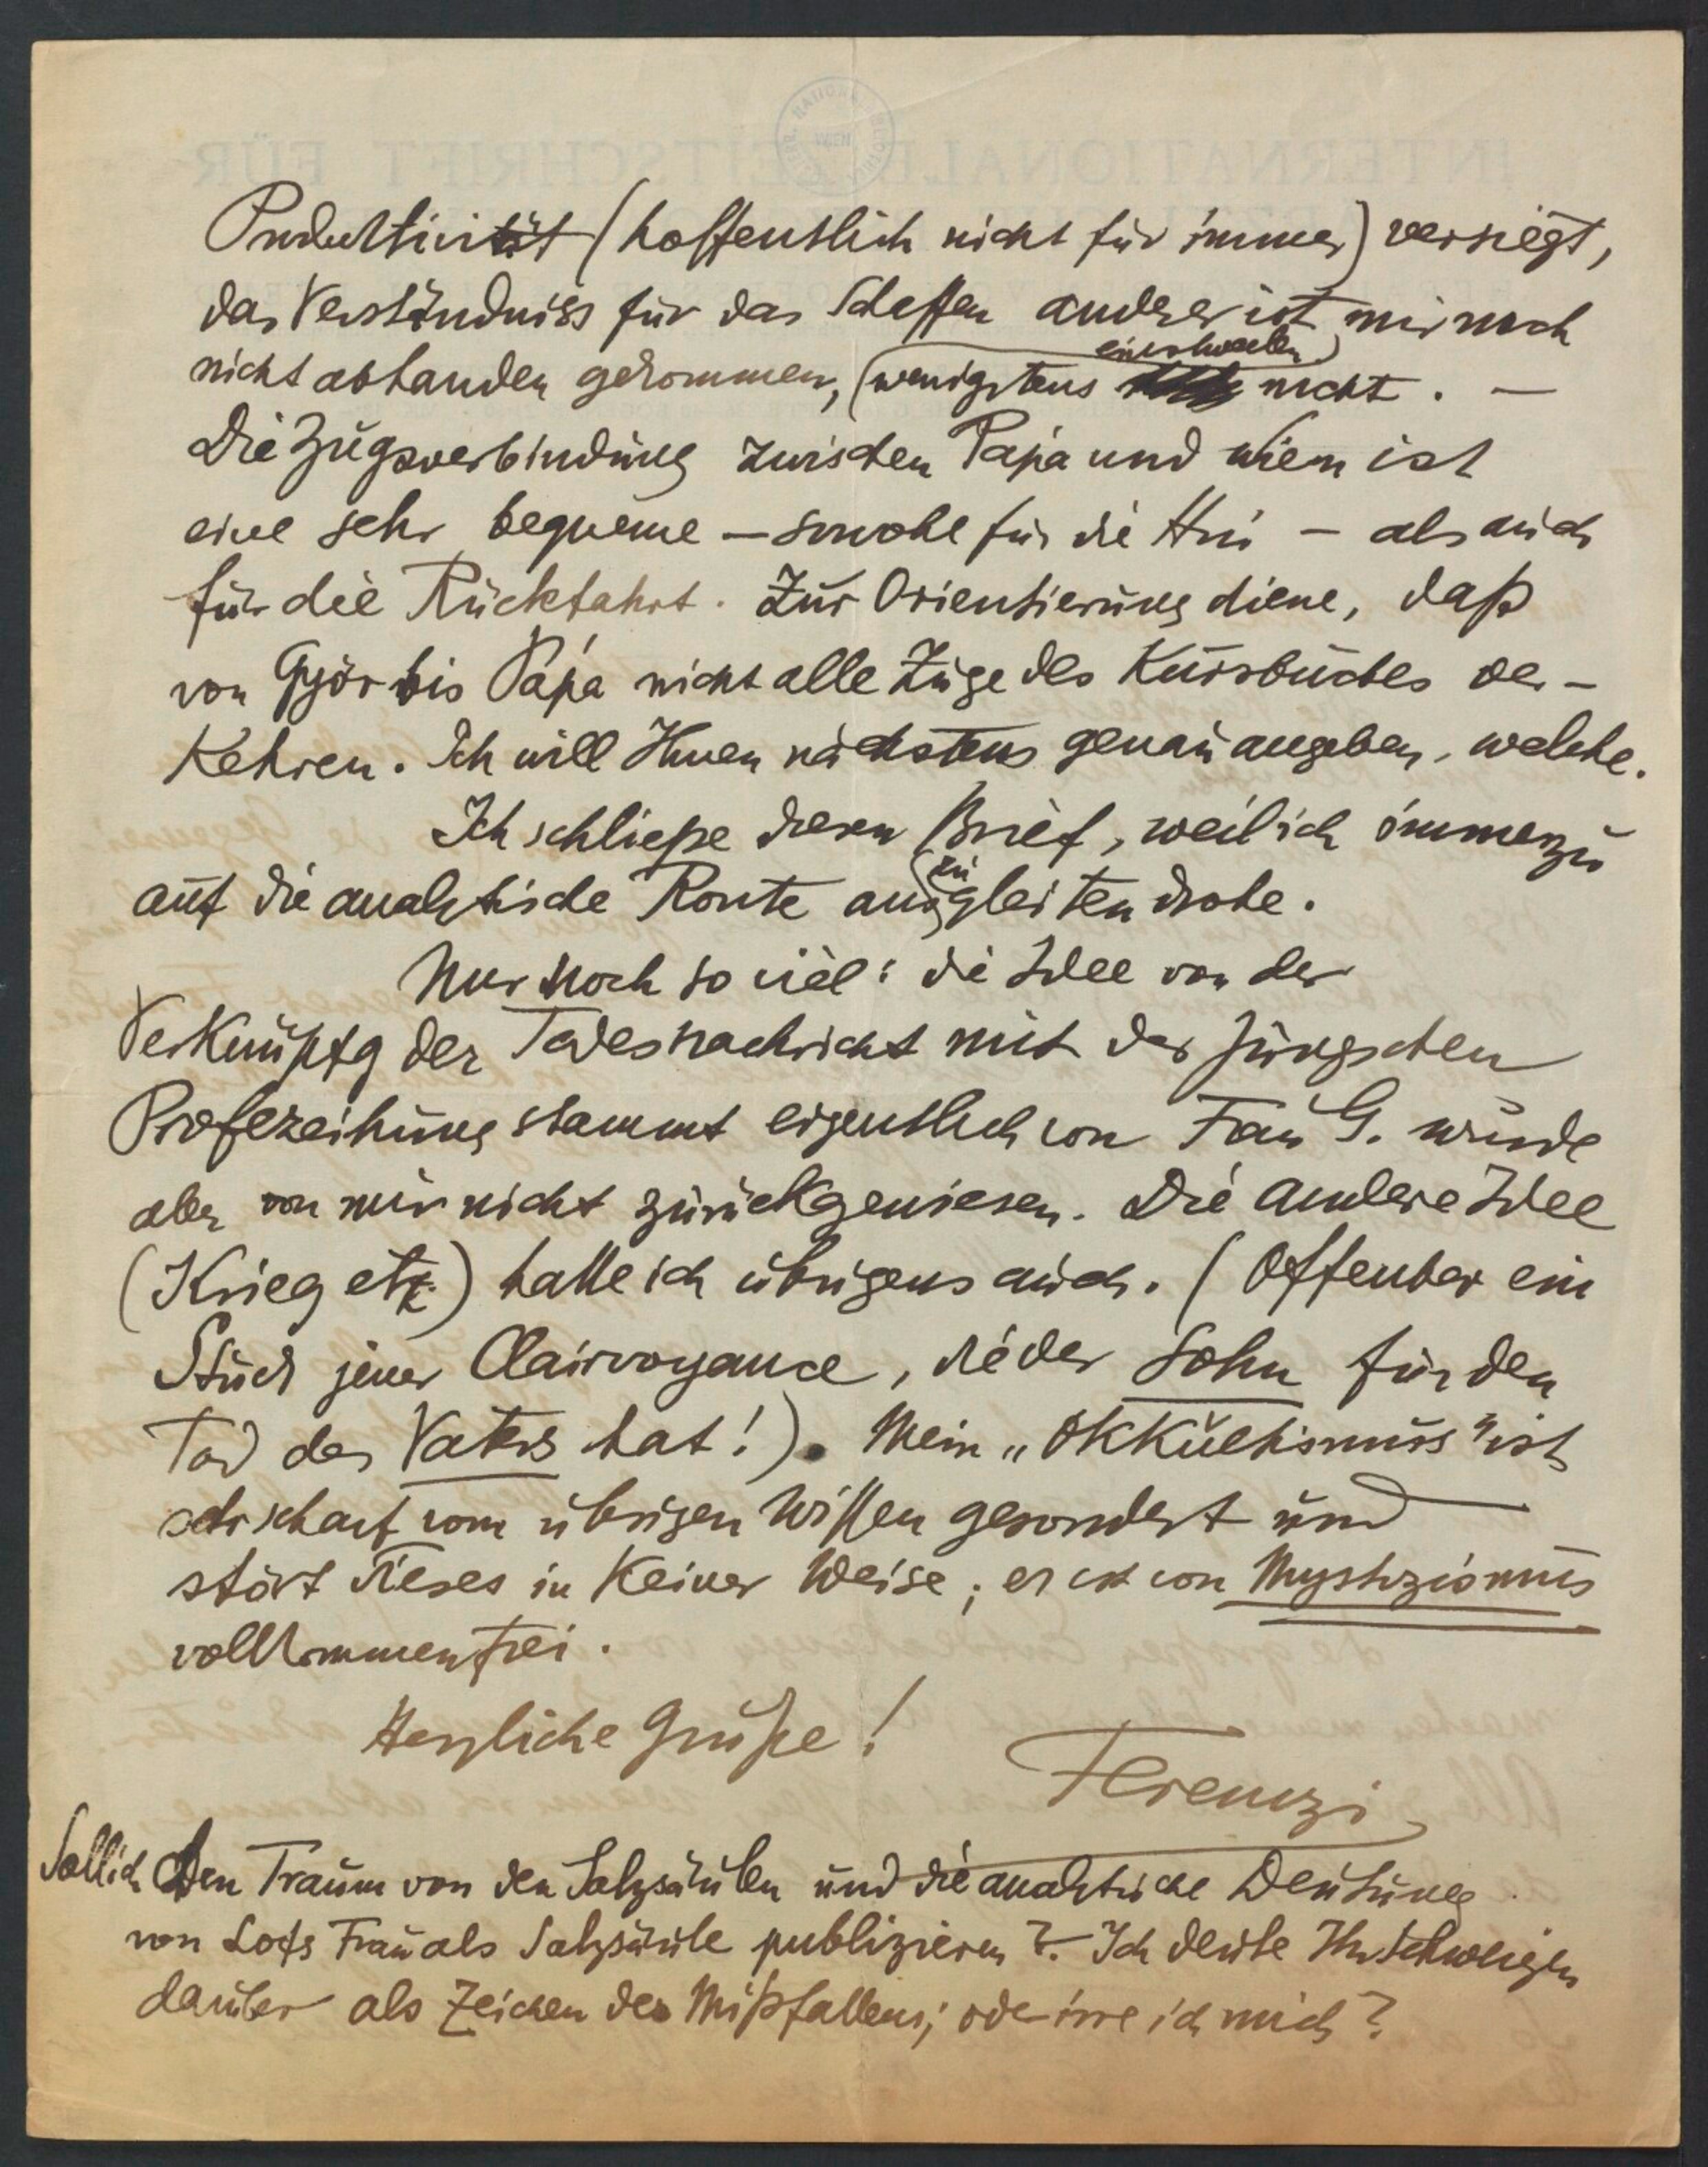 Produktivität (hoffentlich nicht für immer) versiegt,
das Verständniss für das Schaffen anderer ist mir noch
nicht abhanden gekommen, (wenigstens einstweilen nicht. —
Die Zugsverbindung zwischen Pápa und Wien ist
eine sehr bequeme – sowohl für die Hin – als auch
für die Rückfahrt. Zur Orientierung diene, daß
von Győr bis Pápa nicht alle Züge des Kursbuches ver-
kehren. Ich will Ihnen nächstens genau angeben, welche.
Ich schließe diesen Brief, weil ich immerzu
auf die analytische Route auszugleiten drohe.
Nur noch so viel: die Idee von der
Verknüpfg der Todesnachricht mit der Jungschen
Profezeihung stammt eigentlich von Frau G. wurde
aber von mir nicht zurückgewiesen. Die andere Idee
(Krieg etz) hatte ich übrigens auch. (Offenbar ein
Stück jener Clairvoyance, die der Sohn für den
Tod des Vaters hat!). Mein „Okkultismus" ist
sehr scharf vom übrigen Wissen gesondert und
stört dieses in keiner Weise; er ist von Mystizismus
vollkommen frei.
Herzliche Grüße!
Ferenczi
Soll ich den Traum von den Salzsäulen und die analytische Deutung
von Lots Frau als Salzsäule publizieren? – Ich deute Ihr Schweigen
darüber als Zeichen des Mißfallens; oder irre ich mich?